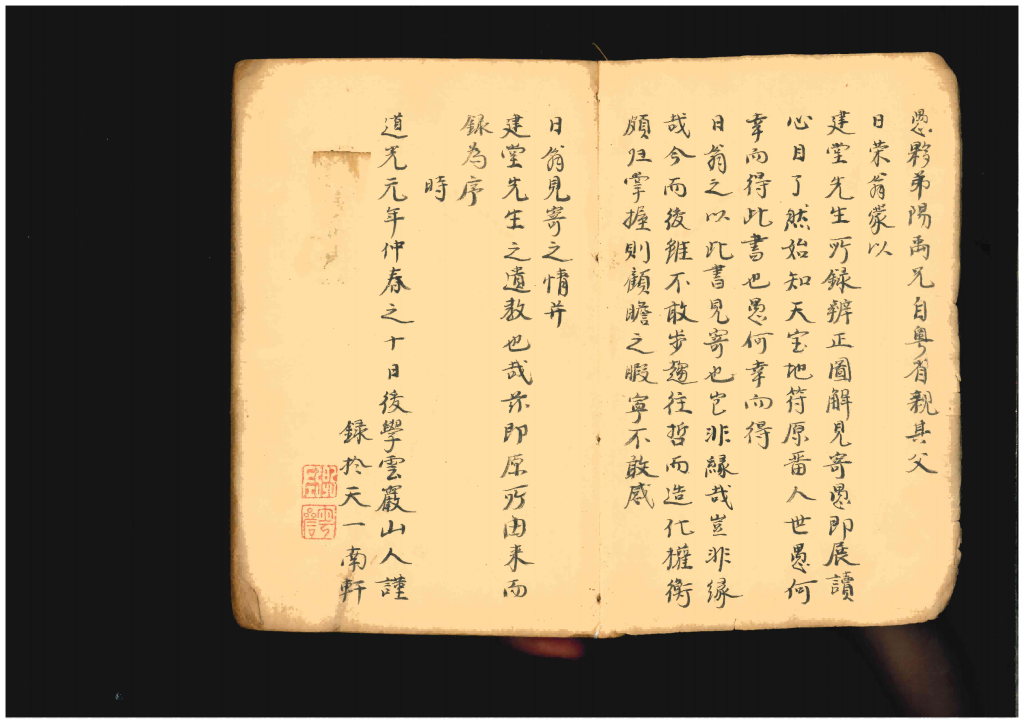 愚夥弟陽禹兄自粵省親其父
日荣翁蒙以
建堂先生所録辨正圖解見寄愚即展讀
心目了然始知天宝地符原畨人世愚何
幸而得此書也愚何幸而得
日翁之以此書見寄也岂非緣哉豈非縁
哉今而後雖不敢步趨往哲而造化權衡
頗归掌握則顧瞻之暇寧不敢感
日翁見寄之情并
建堂先生之遺教也哉茲即原所由来而
録為序
時
道光元年仲春之十日後學雲巖山人謹
録於天一南軒